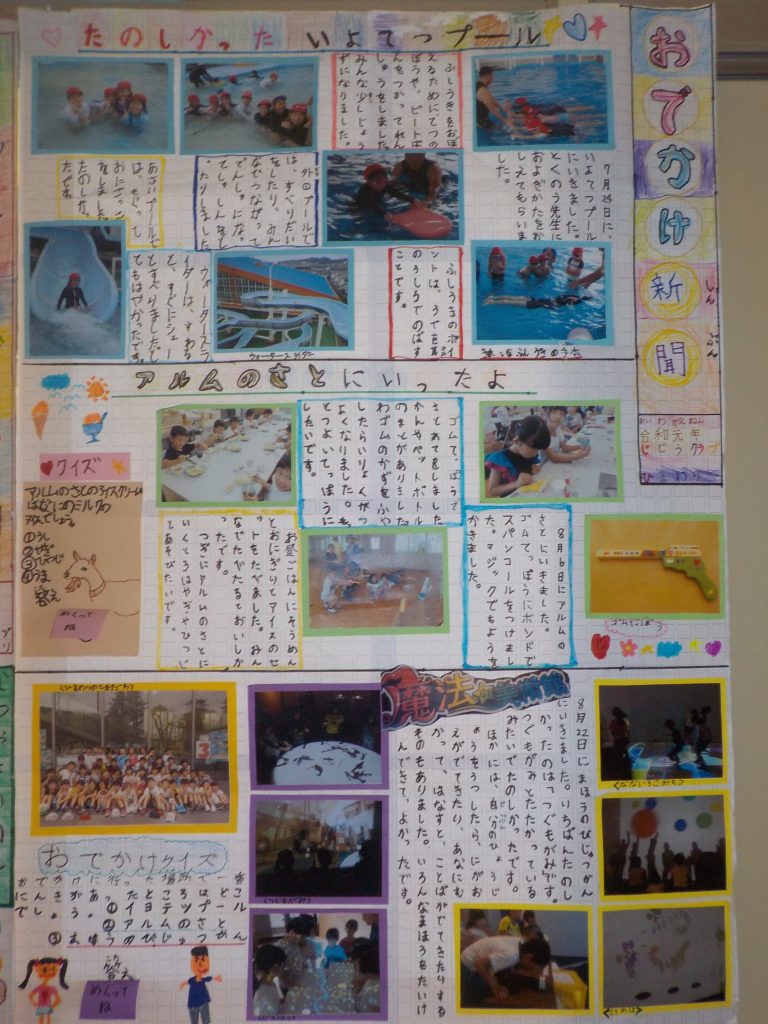 おでかけ新聞
しんぶん
れいわがんねん
令和元年
じどうクラブ
ひまわり
たのしかった いよてつプール
7月24日に、
いよてつプール
にいきました。
とくのう先生に
およぎかたをお
しえてもらいま
した。
ふしうきをおぼ
えるためにてつの
ぼうや、ビートば
んをつかってれん
しゅうをしました。
みんな少しじょう
ずになりました。
ふしうきのポイ
ントは、うでを耳
のうしろでのばす
ことです。
外のプールで
は、すべりだい
をしたり、みん
なでつながって
でんしゃになっ
たりしました
あさいプールで
は、もぐって
おにごっこ
をしました。
たのしかっ
たです。
ウォータースラ
イダーは、すわる
と、すぐにシュー
とすべりました。と
てもはやかったです。
ウォータースライダー
アルムのさとにいったよ
8月6日にアルムの
さとにいきました。
ゴムてっぽうにボンドで
スパンコールをつけまし
た。マジックでもようを
かきました。
ゴムてっぽうで
さとあてをしました
かんやペットボトル
のまとがありました
わゴムのかずをふや
したらいりょくがつ
よくなりました。も
っとつよいてっぽうに
したいです。
お昼ごはんにそうめん
とおにぎりとアイスのセ
ットをたべました。みん
なでたべたるとおいしか
ったです。
つぎにアルムのさとに
いくときはやぎやひつじ
とあそびたいです。
ゴムてっぽう
クイズ
アルムのさとのアイスクリーム
はなにのミルクの
なんでしょう
①うし
②やぎ
③ひつじ
④うま
答え
めくって
ね
魔法の美術館
8月22日にまほうのびじゅつかん
にいきました。いちばんたのし
かったのは「つくもがみ」です。
つくもがみとたたかっている
みたいでたのしかったです。
ほかには、自分のひょうじ
ょうをうつしたら、にがお
えがでてきたり、あなにむ
かって、はなすと、ことばがでてきたりする
ものもありました。いろんなまほうをたいけ
んできて、よかったです。
おでかけクイズ
答え
めくって
ね